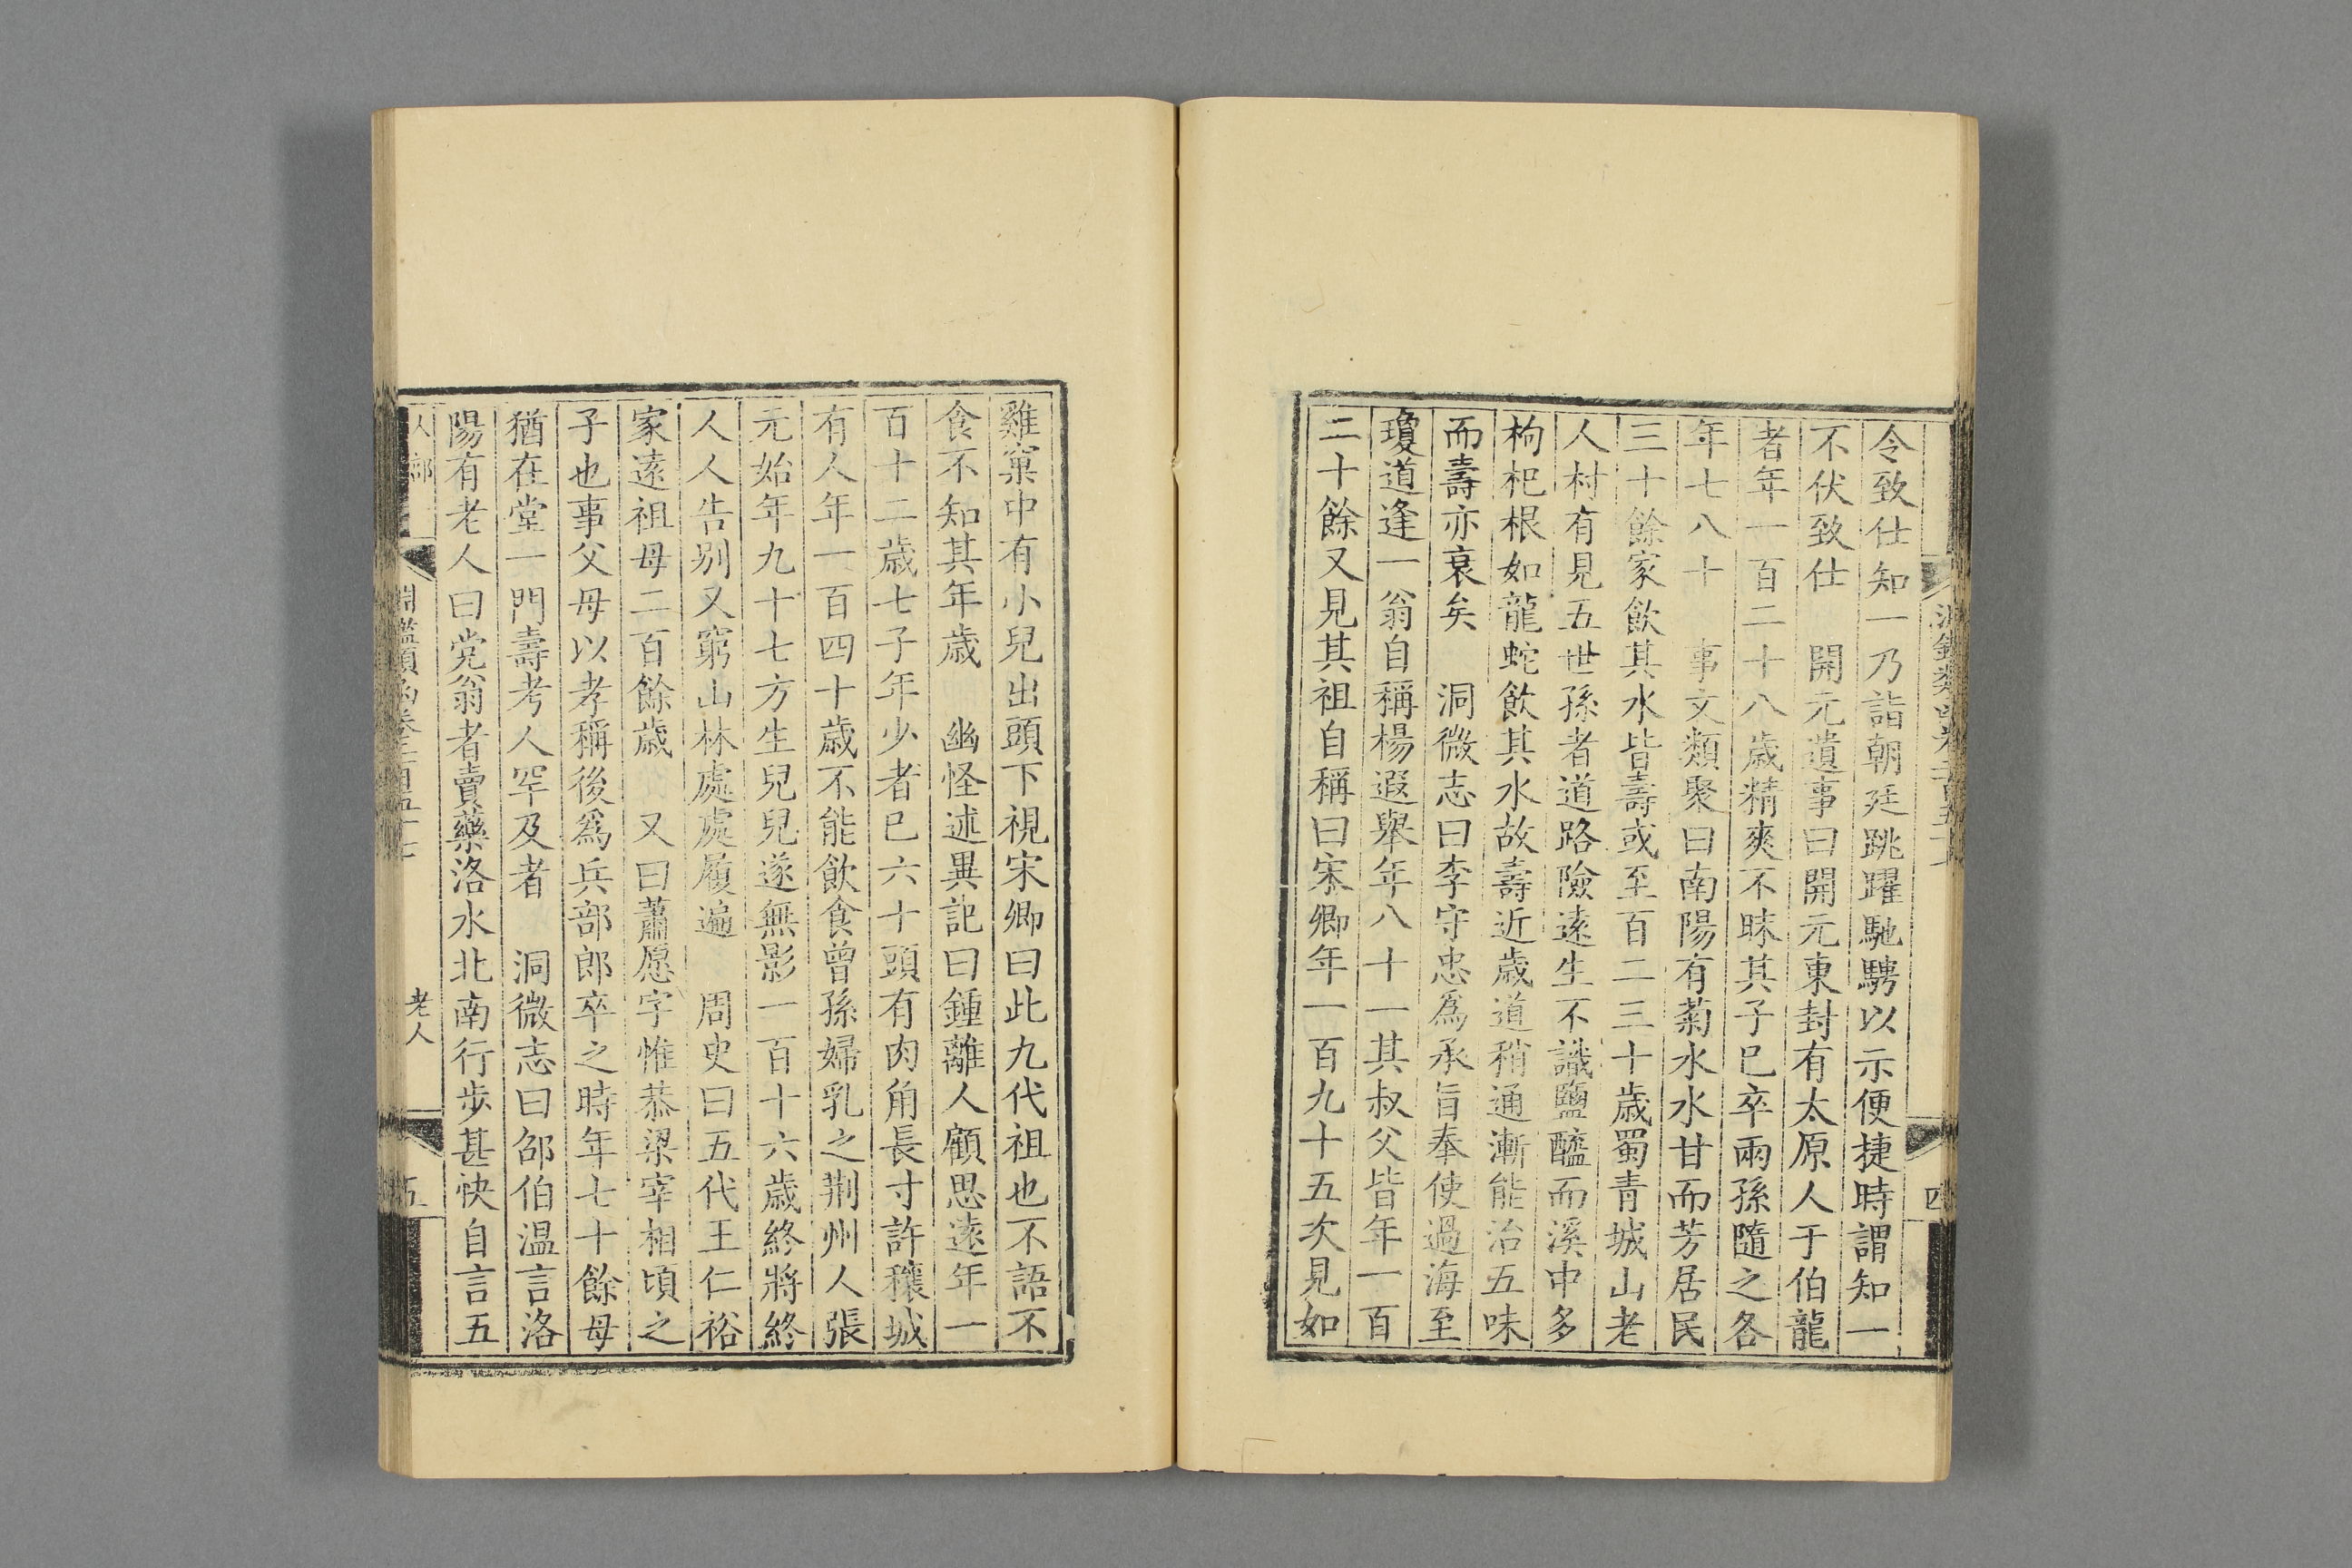 令致仕知一乃詣朝廷跳躍馳騁以示便捷時謂知一
不伏致仕　開元遺事曰開元東封有太原人于伯龍
者年一百二十八歲精爽不昧其子已卒兩孫隨之各
年七八十　事文類聚曰南陽有菊水水甘而芳居民
三十餘家飲其水皆壽或至百二三十歲蜀青城山老
人村有見五世孫者道路險遠生不識鹽醯而溪中多
枸杞根如龍蛇飲其水故壽近歲道稍通漸能治五味
而壽亦衰矣　洞微志曰李守忠爲承旨奉使過海至
瓊道逢一翁自稱楊遐舉年八十一其叔父皆年一百
二十餘又見其祖自稱曰宋卿年一百九十五次見如
四
雞窠中有小兒出頭下視宋卿曰此九代祖也不語不
食不知其年歲　幽怪述異記曰鍾離人顧思遠年一
百十二歲七子年少者已六十頭有肉角長寸許穰城
有人年一百四十歲不能飲食曾孫婦乳之荆州人張
元始年九十七方生兒兒遂無影一百十六歲終將終
人人告别又窮山林處處履遍　周史曰五代王仁裕
家遠祖母二百餘歲　又曰蕭愿字惟恭梁宰相頃之
子也事父母以孝稱後爲兵部郎卒之時年七十餘母
猶在堂一門壽考人罕及者　洞微志曰邵伯温言洛
陽有老人曰党翁者賣藥洛水北南行步甚快自言五
人部
淵鑑類函卷二百五十七
老人
五